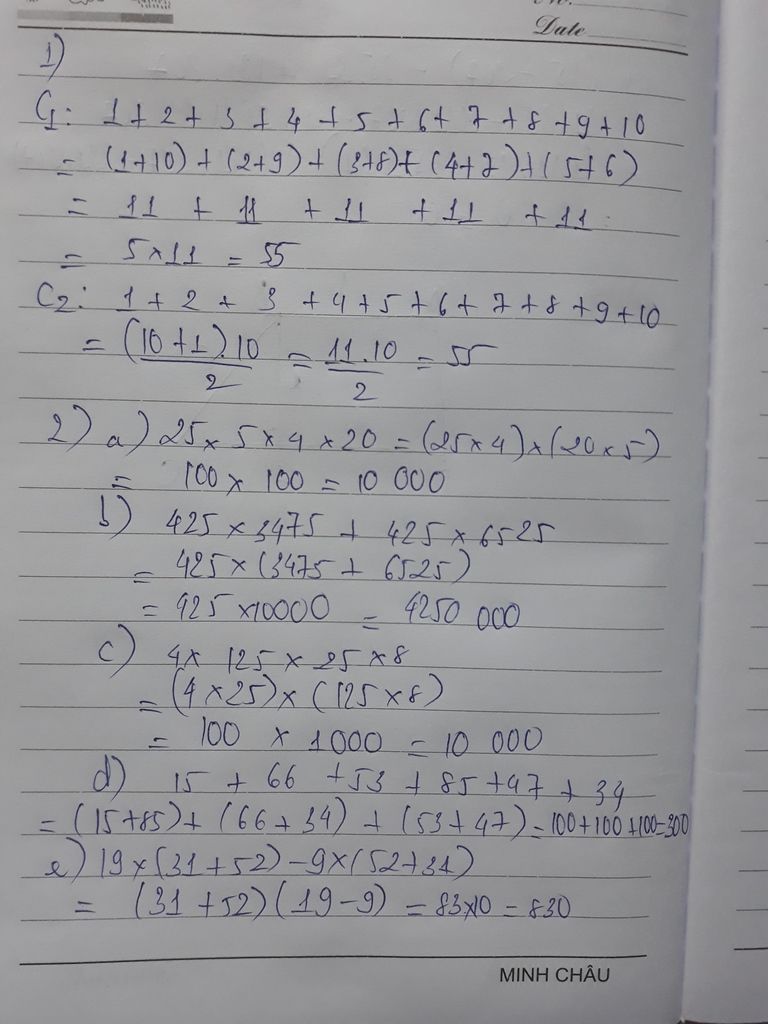 Date
1)
C1: 1 + 2 + 3 + 4 + 5 + 6 + 7 + 8 + 9 + 10
= (1+10) + (2+9) + (3+8) + (4+7) + (5+6)
= 11 + 11 + 11 + 11 + 11
= 5 × 11 = 55
C2: 1 + 2 + 3 + 4 + 5 + 6 + 7 + 8 + 9 + 10
= (10 + 1).10 / 2 = 11.10 / 2 = 55
2) a) 25 × 5 × 4 × 20 = (25 × 4) × (20 × 5)
= 100 × 100 = 10 000
b) 425 × 3475 + 425 × 6525
= 425 × (3475 + 6525)
= 425 × 10000 = 4250 000
c) 4 × 125 × 25 × 8
= (4 × 25) × (125 × 8)
= 100 × 1000 = 10 000
d) 15 + 66 + 53 + 85 + 47 + 34
= (15+85) + (66 + 34) + (53 + 47) = 100 + 100 + 100 = 300
e) 19 × (31 + 52) - 9 × (52 + 31)
= (31 + 52) (19 - 9) = 83×10 = 830
MINH CHÂU